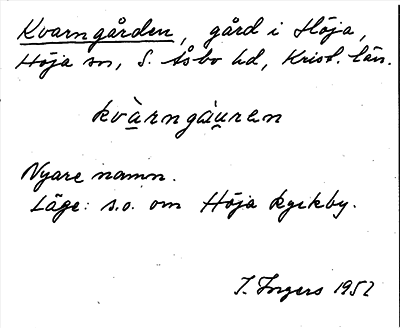 Kvarngården, gård i Höja,
Höja sn, S. Åsbo hd, Krist. län.
kvàrngàuren
Nyare namn.
Läge: s.o. om Höja kyrkby.
I. Ingers 1952